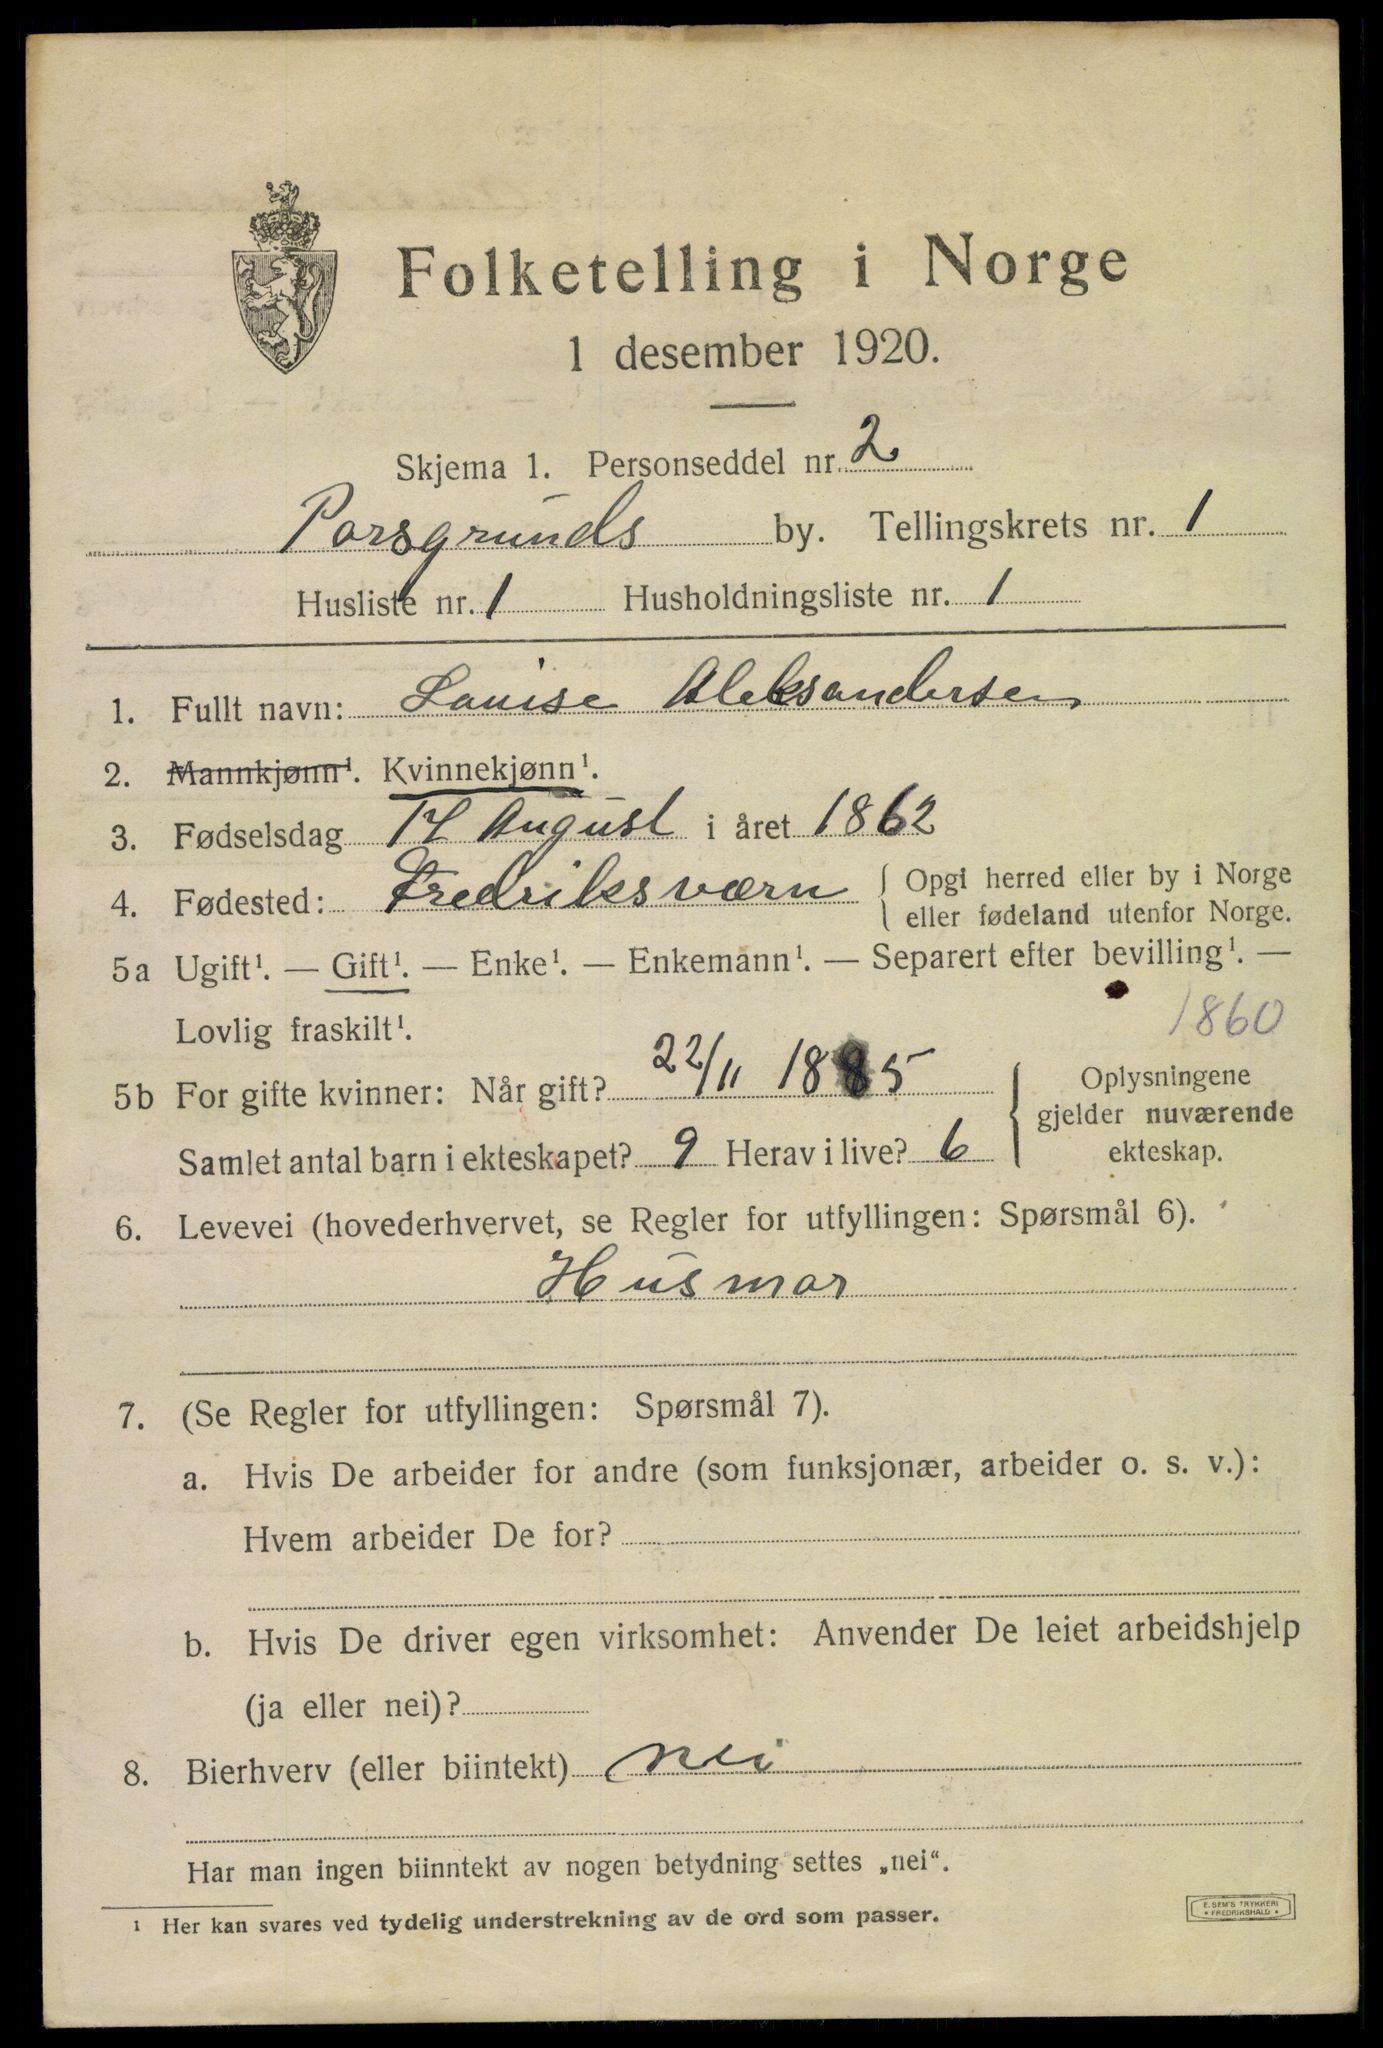 Folketelling i Norge
1 desember 1920.
Skjema 1. Personseddel nr. 2
Porsgrunds by. Tellingskrets nr. 1
Husliste nr. 1 Husholdningsliste nr. 1
1. Fullt navn: Louise Aleksandersen
2. Mannkjønn¹. Kvinnekjønn¹.
3. Fødselsdag August i året 1862
4. Fødested: Fredriksværn { Opgi herred eller by i Norge
eller fødeland utenfor Norge.
5a Ugift¹. — Gift¹. — Enke¹. — Enkemann¹. — Separert efter bevilling¹. —
Lovlig fraskilt¹. 1860
5b For gifte kvinner: Når gift? 22/11 1885
Samlet antal barn i ekteskapet? 9 Herav i live? 6
{ Oplysningene
gjelder nuværende
ekteskap.
6. Levevei (hovederhvervet, se Regler for utfyllingen: Spørsmål 6).
Husmor
7. (Se Regler for utfyllingen: Spørsmål 7).
a. Hvis De arbeider for andre (som funksjonær, arbeider o. s. v.):
Hvem arbeider De for?
b. Hvis De driver egen virksomhet: Anvender De leiet arbeidshjelp
(ja eller nei)?
8. Bierhverv (eller biintekt) nei
Har man ingen biinntekt av nogen betydning settes „nei“.
¹ Her kan svares ved tydelig understrekning av de ord som passer.
E. SEM'S TRYKKERI
* FREDRIKSHALD *